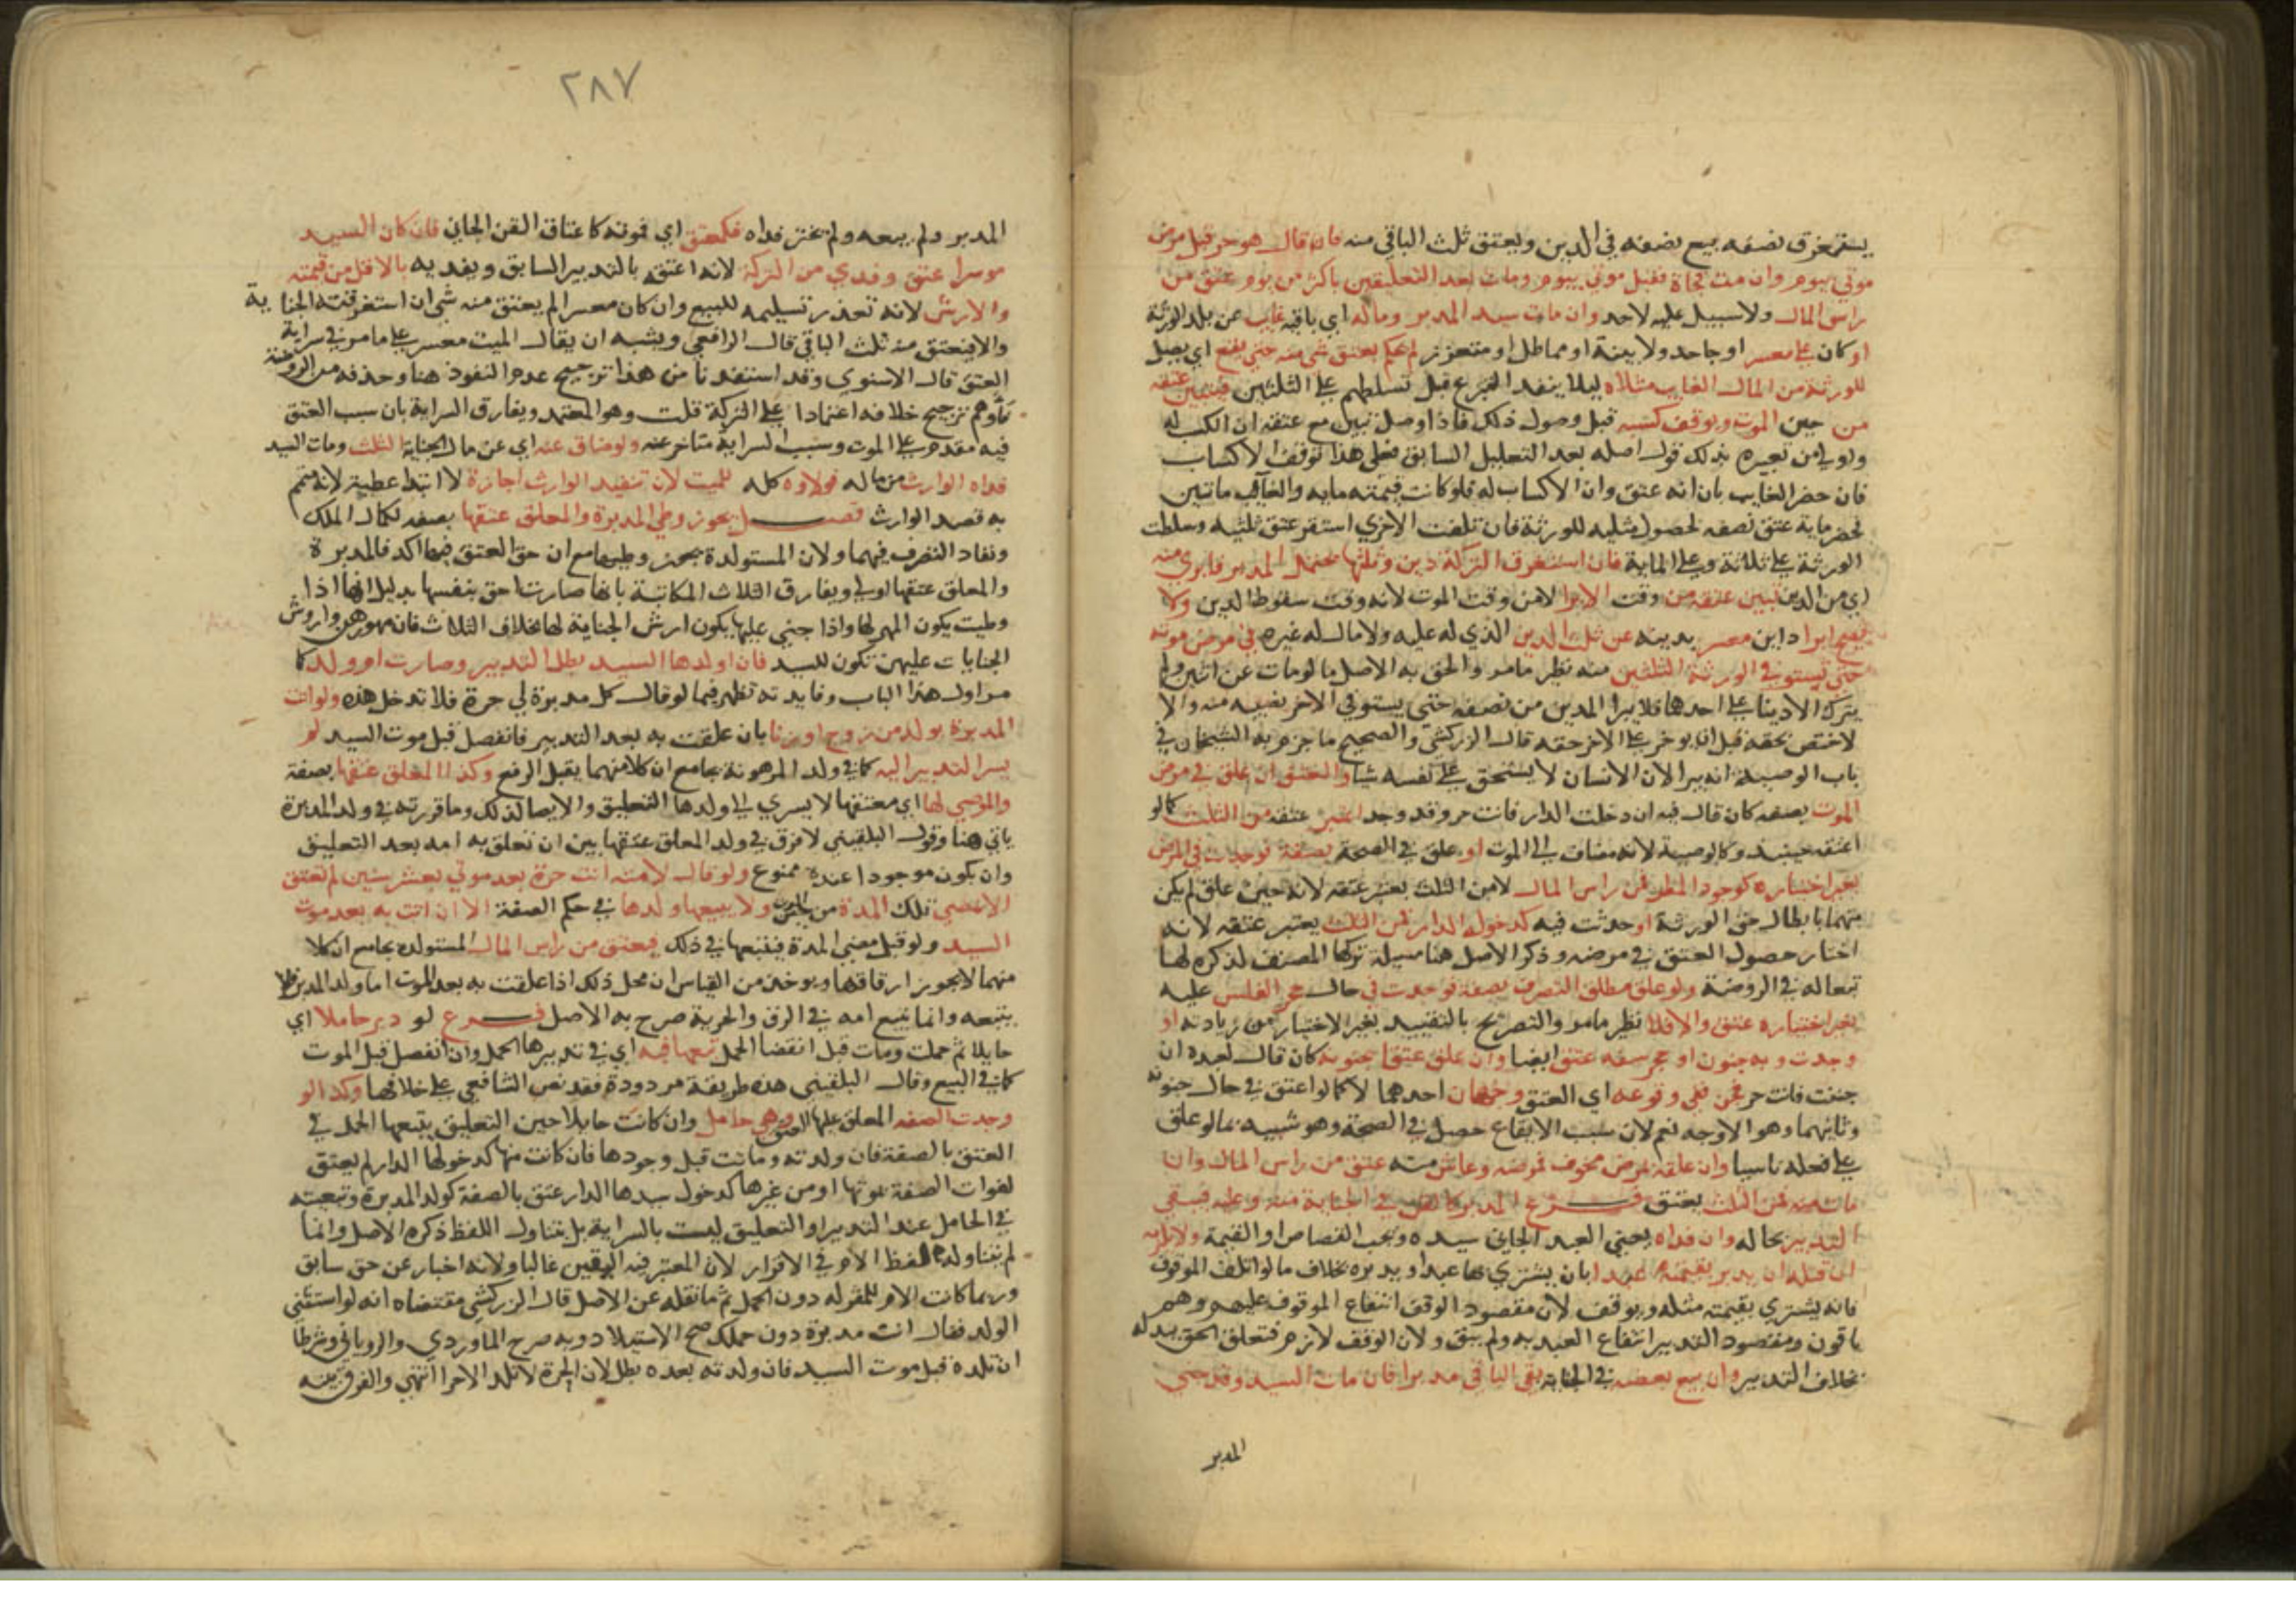 يستغرق نصفه بيع نصفه في الدين ويعتق ثلث الباقي منه فان قال هو حر قبل مرض
موتي بيوم وان مت فجاة فقبل موتي بيوم ومات بعد التعليقين باكثر من يوم عتق من
راس المال ولا سبيل عليه لاحد وان مات سيد المدبر وماله اي باقيه غايب عن بلد الورثة
او كان على معسر او جاحد ولا بينة او مماطل او متعزز لم يحكم بعتق شي منه حتى يصل اي يصل
للورثة من المال الغايب مثلاه ليلا ينفد التبرع قبل تسلطهم على الثلثين فيتبين عتقه
من حين الموت ويوقف كسبه قبل وصول ذلك فاذا وصل تبين مع عتقه ان الكسب له
واولى من تعبيره بذلك قول اصله بعد التعليل السابق فعلى هذا توقف الاكساب
فان حضر الغايب بان انه عتق وان الاكساب له فلو كانت قيمته مايه والغايب مايتين
فحضر ماية عتق نصفه لحصول مثليه للورثة فان تلفت الاخرى استقر عتق ثلثيه وتسلطت
الورثة على ثلاثة وعلى الماية فان استغرق التركة دين وثلثها يحتمل المدبر فابري منه
اي من الدين تبين عتقه من وقت الابرا لا من وقت الموت لانه وقت سقوط الدين ولا
يصح ابرا داين معسر بدينه عن ثلث الدين الذي له عليه ولا مال له غيره في مرض موته
حتى يستوفي الورثة الثلثين منه نظير ما مر والحق به الاصل ما لو مات عن اثنين ولم
يترك الا دينا على احدهما فلا يبرا المدين من نصفه حتى يستوفي الاخر نصيبه منه والا
لاختص بحقه قبل ان يوخر على الاخر حقه قال الزركشي والصحيح ما جزم به الشيخان في
باب الوصية انه يبرا لان الانسان لا يستحق على نفسه شيا والعتق ان علق في مرض
الموت بصفه كان قال فيه ان دخلت الدار فانت حر وقد وجد اعتبر عتقه من الثلث كما لو
اعتقه حينيذ وكالوصية لانه مضاف الى الموت او علق في الصحة بصفة فوجدت في المرض
بغير اختياره كوجود المطر فمن راس المال لا من الثلث يعتبر عتقه لانه حين علق لم يكن
متهما بابطال حق الورثة او حدثت فيه كدخوله الدار فمن الثلث يعتبر عتقه لانه
اختار حصول العتق في مرضه وذكر الاصل هنا مسيلة تركها المصنف لذكره لها
تبعا له في الروضة ولو علق مطلق التصرف بصفة فوجدت في حال حجر الفلس عليه
بغير اختياره عتق والا فلا نظير ما مر والتصريح بالتقييد بغير الاختيار من زيادته او
وجدت وبه جنون او حجر سفه عتق ايضا وان علق عتقا بجنونه كان قال لعبده ان
جننت فانت حر فجن ففي وقوعه اي العتق وجهان احدهما لا كما لو اعتق في حال جنونه
وثانيهما وهو الاوجه نعم لان سبب الايقاع حصل في الصحة وهو شبيه بما لو علق
على فعله ناسيا وان علقه بمرض مخوف فمرضه وعاش منه عتق من راس المال وان
مات منه فمن الثلث يعتق فرع المدبر كالقن في الجناية منه وعليه فيبقى
التدبير بحاله وان فداه يعني العبد الجاني سيده ويجب القصاص او القيمة ولا يلزمه
ان قتله ان يدبر بقيمته عبدا بان يشتري بها عبدا ويدبره بخلاف ما لو اتلف الموقوف
فانه يشتري بقيمته مثله ويوقف لان مقصود الوقف انتفاع الموقوف عليهم وهم
باقون ومقصود التدبير انتفاع العبد به ولم يبق ولان الوقف لازم فتعلق الحق ببدله
بخلاف التدبير وان بيع بعضه في الجناية بقي الباقي مدبرا فان مات السيد وقد جنى
المدبر
٢٨٧
المدبر ولم يبعه ولم يختر فداه فكعتق اي فموته كاعتاق القن الجاني فان كان السيد
موسرا عتق وفدي من التركة لانه اعتقه بالتدبير السابق ويفديه بالاقل من قيمته
والارش لانه تعذر تسليمه للبيع وان كان معسرا لم يعتق منه شي ان استغرقته الجناية
والا فيعتق منه ثلث الباقي قال الرافعي ويشبه ان يقال الميت معسر على ما مر في سراية
العتق قال الاسنوي وقد استفدنا من هذا ترجيح عدم النفوذ هنا وحذفه من الروضة
فاوهم ترجيح خلافه اعتمادا على التركة قلت وهو المعتمد ويفارق السراية بان سبب العتق
فيه مقدم على الموت وسبب السراية متاخر عنه ولو ضاق عنه اي عن مال الجناية الثلث ومات السيد
فداه الوارث من ماله فولاوه كله للميت لان تنفيد الوارث اجازة لا ابتدا عطية لانه متمم
به قصد الوارث فصل يجوز وطي المدبرة والمعلق عتقها بصفه لكمال الملك
ونفاد التصرف فيهما ولان المستولدة يجوز وطيها مع ان حق العتق فيها اكد فالمدبرة
والمعلق عتقها اولى ويفارق الثلاث المكاتبة بانها صارت احق بنفسها بدليل انها اذا
وطيت يكون المهر لها واذا جني عليها يكون ارش الجناية لها بخلاف الثلاث فان مهورهن واروش
الجنايات عليهن تكون للسيد فان اولدها السيد بطل التدبير وصارت ام ولد كما
مر اول هذا الباب وفايدته تظهر فيما لو قال كل مدبرة لي حرة فلا تدخل هذه ولو اتت
المدبرة بولد من زوج او زنا بان علقت به بعد التدبير فانفصل قبل موت السيد لم
يسر التدبير اليه كما في ولد المرهونة بجامع ان كلا منهما يقبل الرفع وكذا المعلق عتقها بصفة
والموصى لها اي بعتقها لا يسري الى ولدها التعليق والايصا لذلك وما قررته في ولد المدبرة
ياتي هنا وقول البلقيني لا فرق في ولد المعلق عتقها بين ان تعلق به امه بعد التعليق
وان يكون موجودا عنده ممنوع ولو قال لامته انت حرة بعد موتي بعشر سنين لم تعتق
الا بمضي تلك المدة من حين الموت ولا يبيعها ولدها في حكم الصفة الا ان اتت به بعد موت
السيد ولو قبل مضي المدة فيتبعها في ذلك فيعتق من راس المال المستولده بجامع ان كلا
منهما لا يجوز ارقاقها ويوخذ من القياس ان محل ذلك اذا علقت به بعد الموت اما ولد المدبر فلا
يتبعه وانما يتبع امه في الرق والحرية صرح به الاصل فرع لو دبر حاملا اي
حايلا ثم حملت ومات قبل انقضا الحمل تبعها فيه اي في تدبيرها الحمل وان انفصل قبل الموت
كما في البيع وقال البلقيني هذه طريقة مردودة فقد نص الشافعي على خلافها وكذا لو
وجدت الصفه المعلق عليها العتق وهي حامل وان كانت حايلا حين التعليق يتبعها الحمل في
العتق بالصفة فان ولدته وماتت قبل وجودها فان كانت منها كدخولها الدار لم يعتق
لفوات الصفة بموتها او من غيرها كدخول سيدها الدار عتق بالصفة كولد المدبرة وتبعيته
في الحامل عند التدبير او التعليق ليست بالسراية بل بتناول اللفظ ذكره الاصل وانما
لم يتناوله لفظ الام في الاقرار لان المعتبر فيه اليقين غالبا ولانه اخبار عن حق سابق
وربما كانت الام للمقر له دون الحمل ثم ما نقله عن الاصل قال الزركشي مقتضاه انه لو استثنى
الولد فقال انت مدبرة دون حملك صح الاستيلاد وبه صرح الماوردي والروياني وشرطا
ان تلده قبل موت السيد فان ولدته بعده بطل لان الحرة لا تلد الا حرا انتهى والفرق بينه